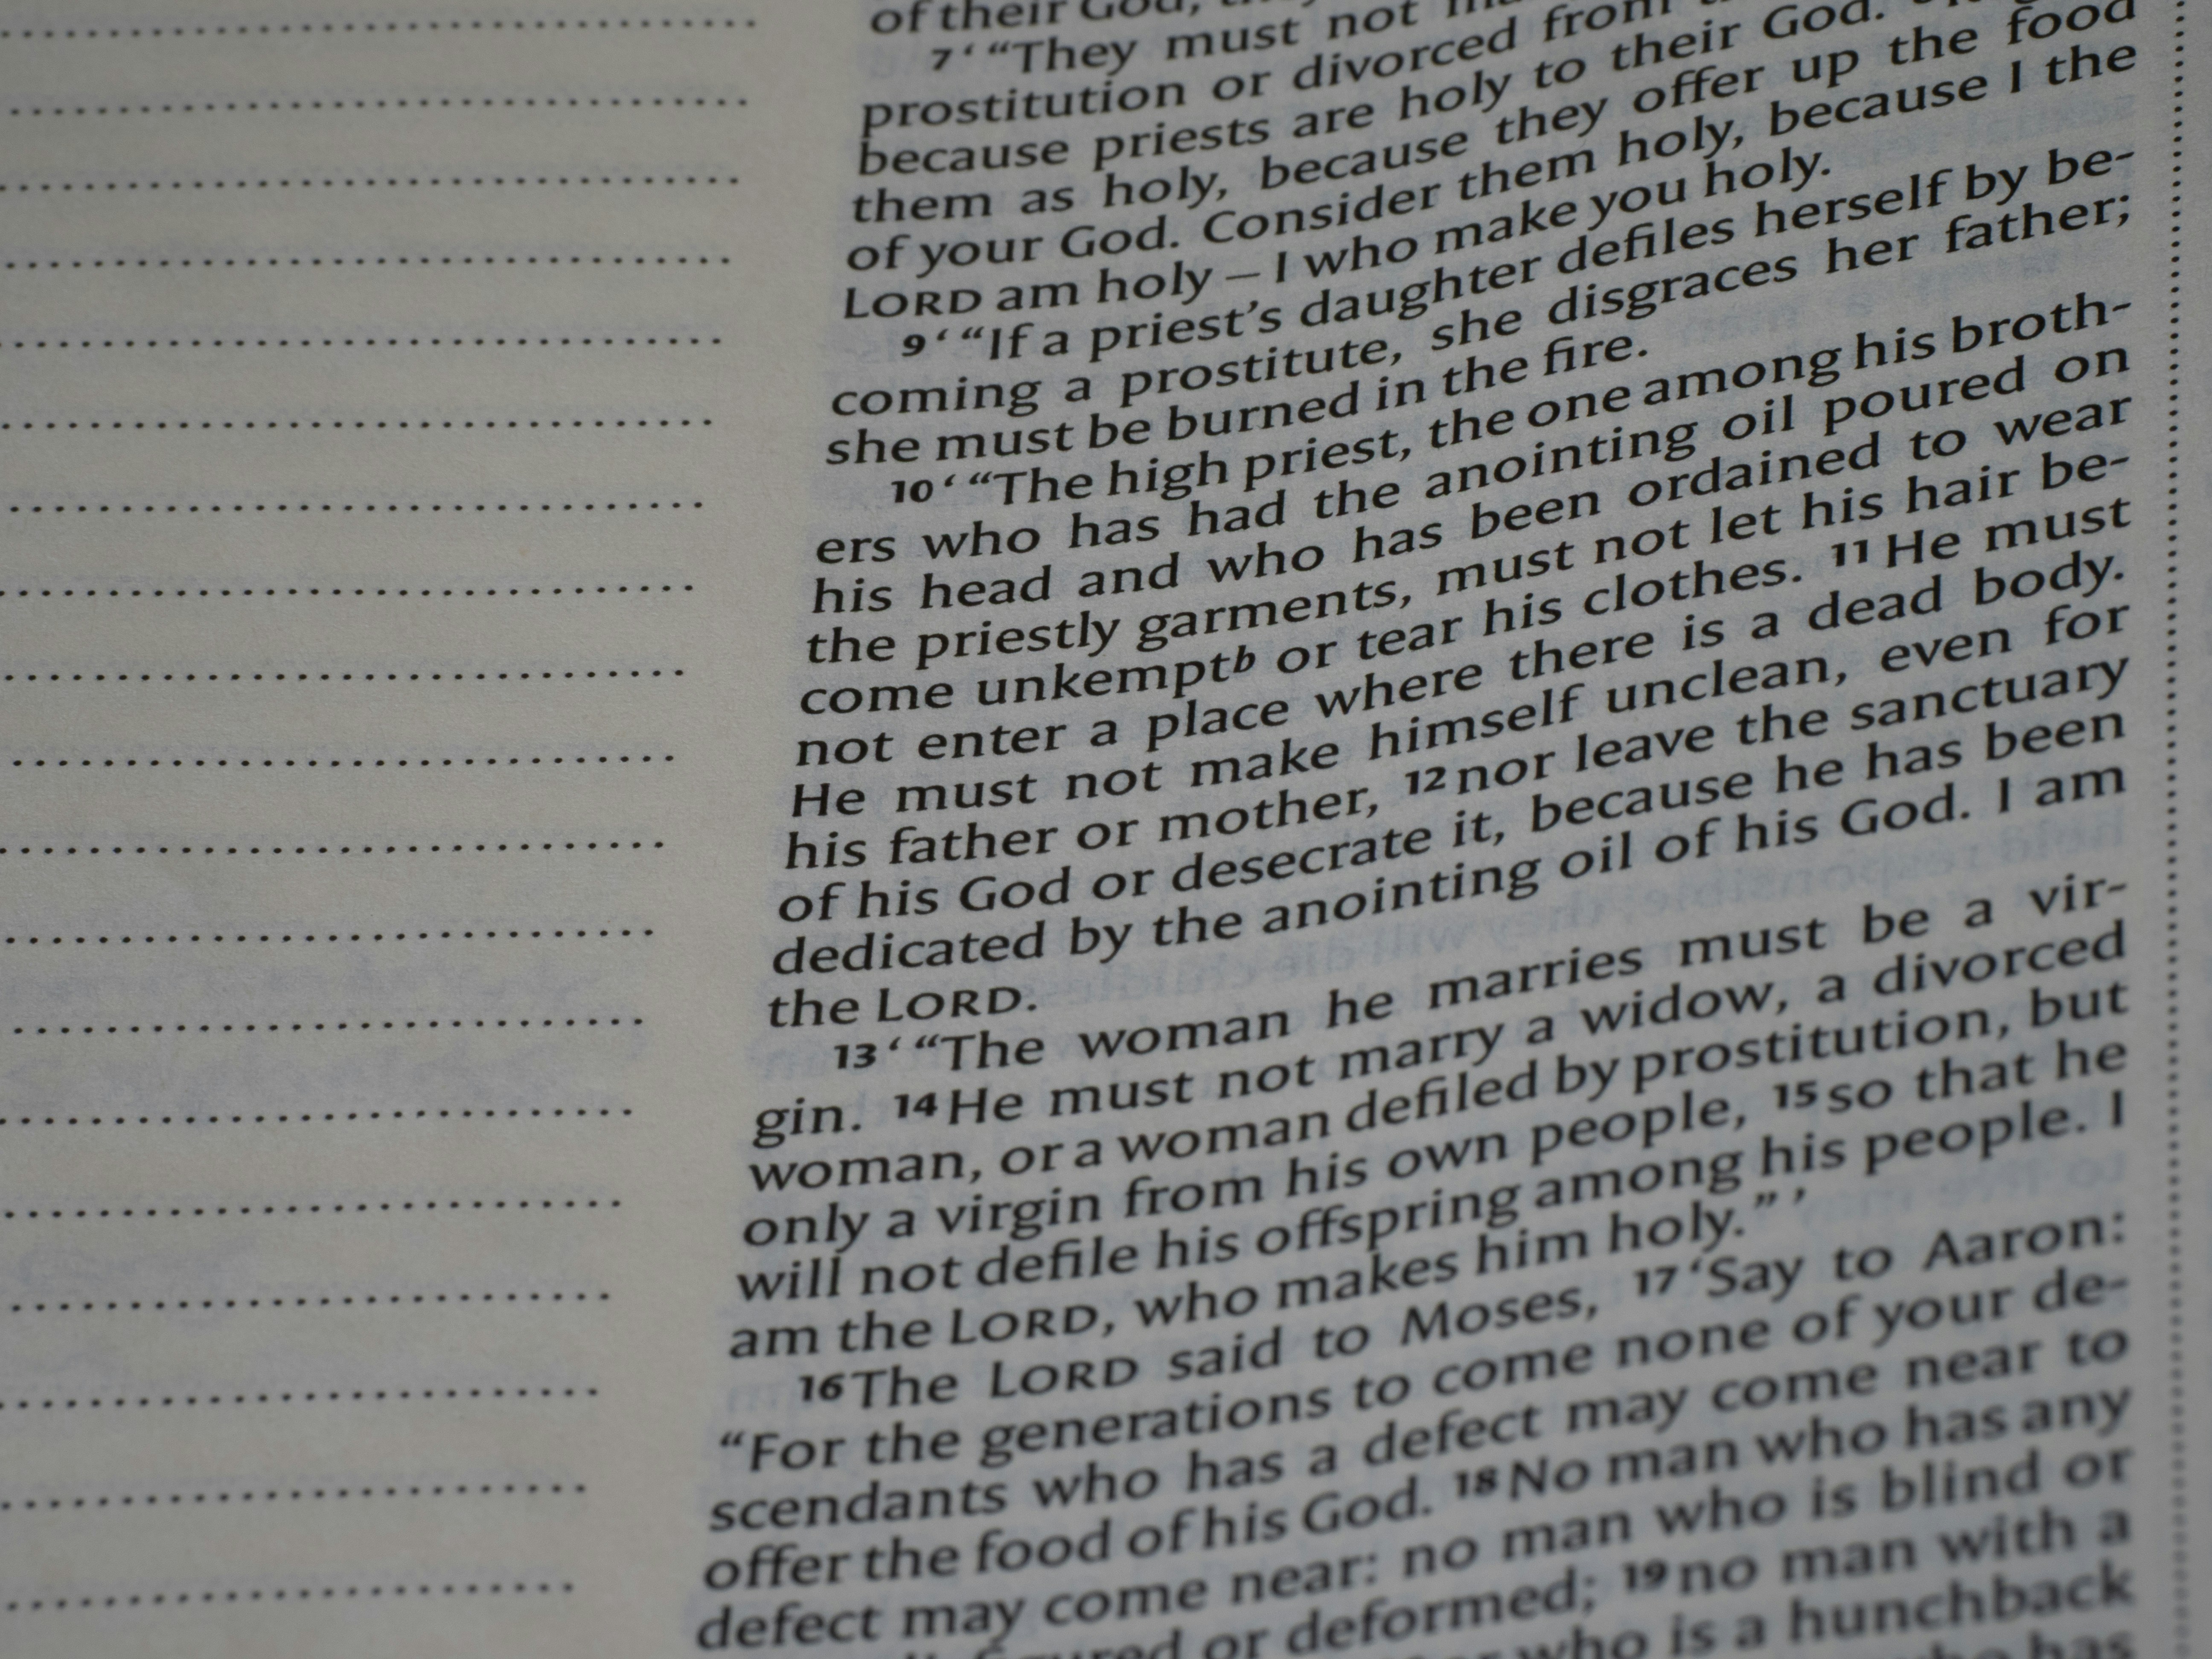 of their God,
7 ‘ “They must not
prostitution or divorced from
because priests are holy to their God.
them as holy, because they offer up the food
of your God. Consider them holy, because I the
LORD am holy – I who make you holy.
9 ‘ “If a priest’s daughter defiles herself by be-
coming a prostitute, she disgraces her father;
she must be burned in the fire.
10 ‘ “The high priest, the one among his broth-
ers who has had the anointing oil poured on
his head and who has been ordained to wear
the priestly garments, must not let his hair be-
come unkemptb or tear his clothes. 11 He must
not enter a place where there is a dead body.
He must not make himself unclean, even for
his father or mother, 12 nor leave the sanctuary
of his God or desecrate it, because he has been
dedicated by the anointing oil of his God. I am
the LORD.
13 ‘ “The woman he marries must be a vir-
gin. 14 He must not marry a widow, a divorced
woman, or a woman defiled by prostitution, but
only a virgin from his own people, 15 so that he
will not defile his offspring among his people. I
am the LORD, who makes him holy.” ’
16 The LORD said to Moses, 17 ‘Say to Aaron:
“For the generations to come none of your de-
scendants who has a defect may come near to
offer the food of his God. 18 No man who has any
defect may come near: no man who is blind or
or deformed; 19 no man with a
who is a hunchback
who has